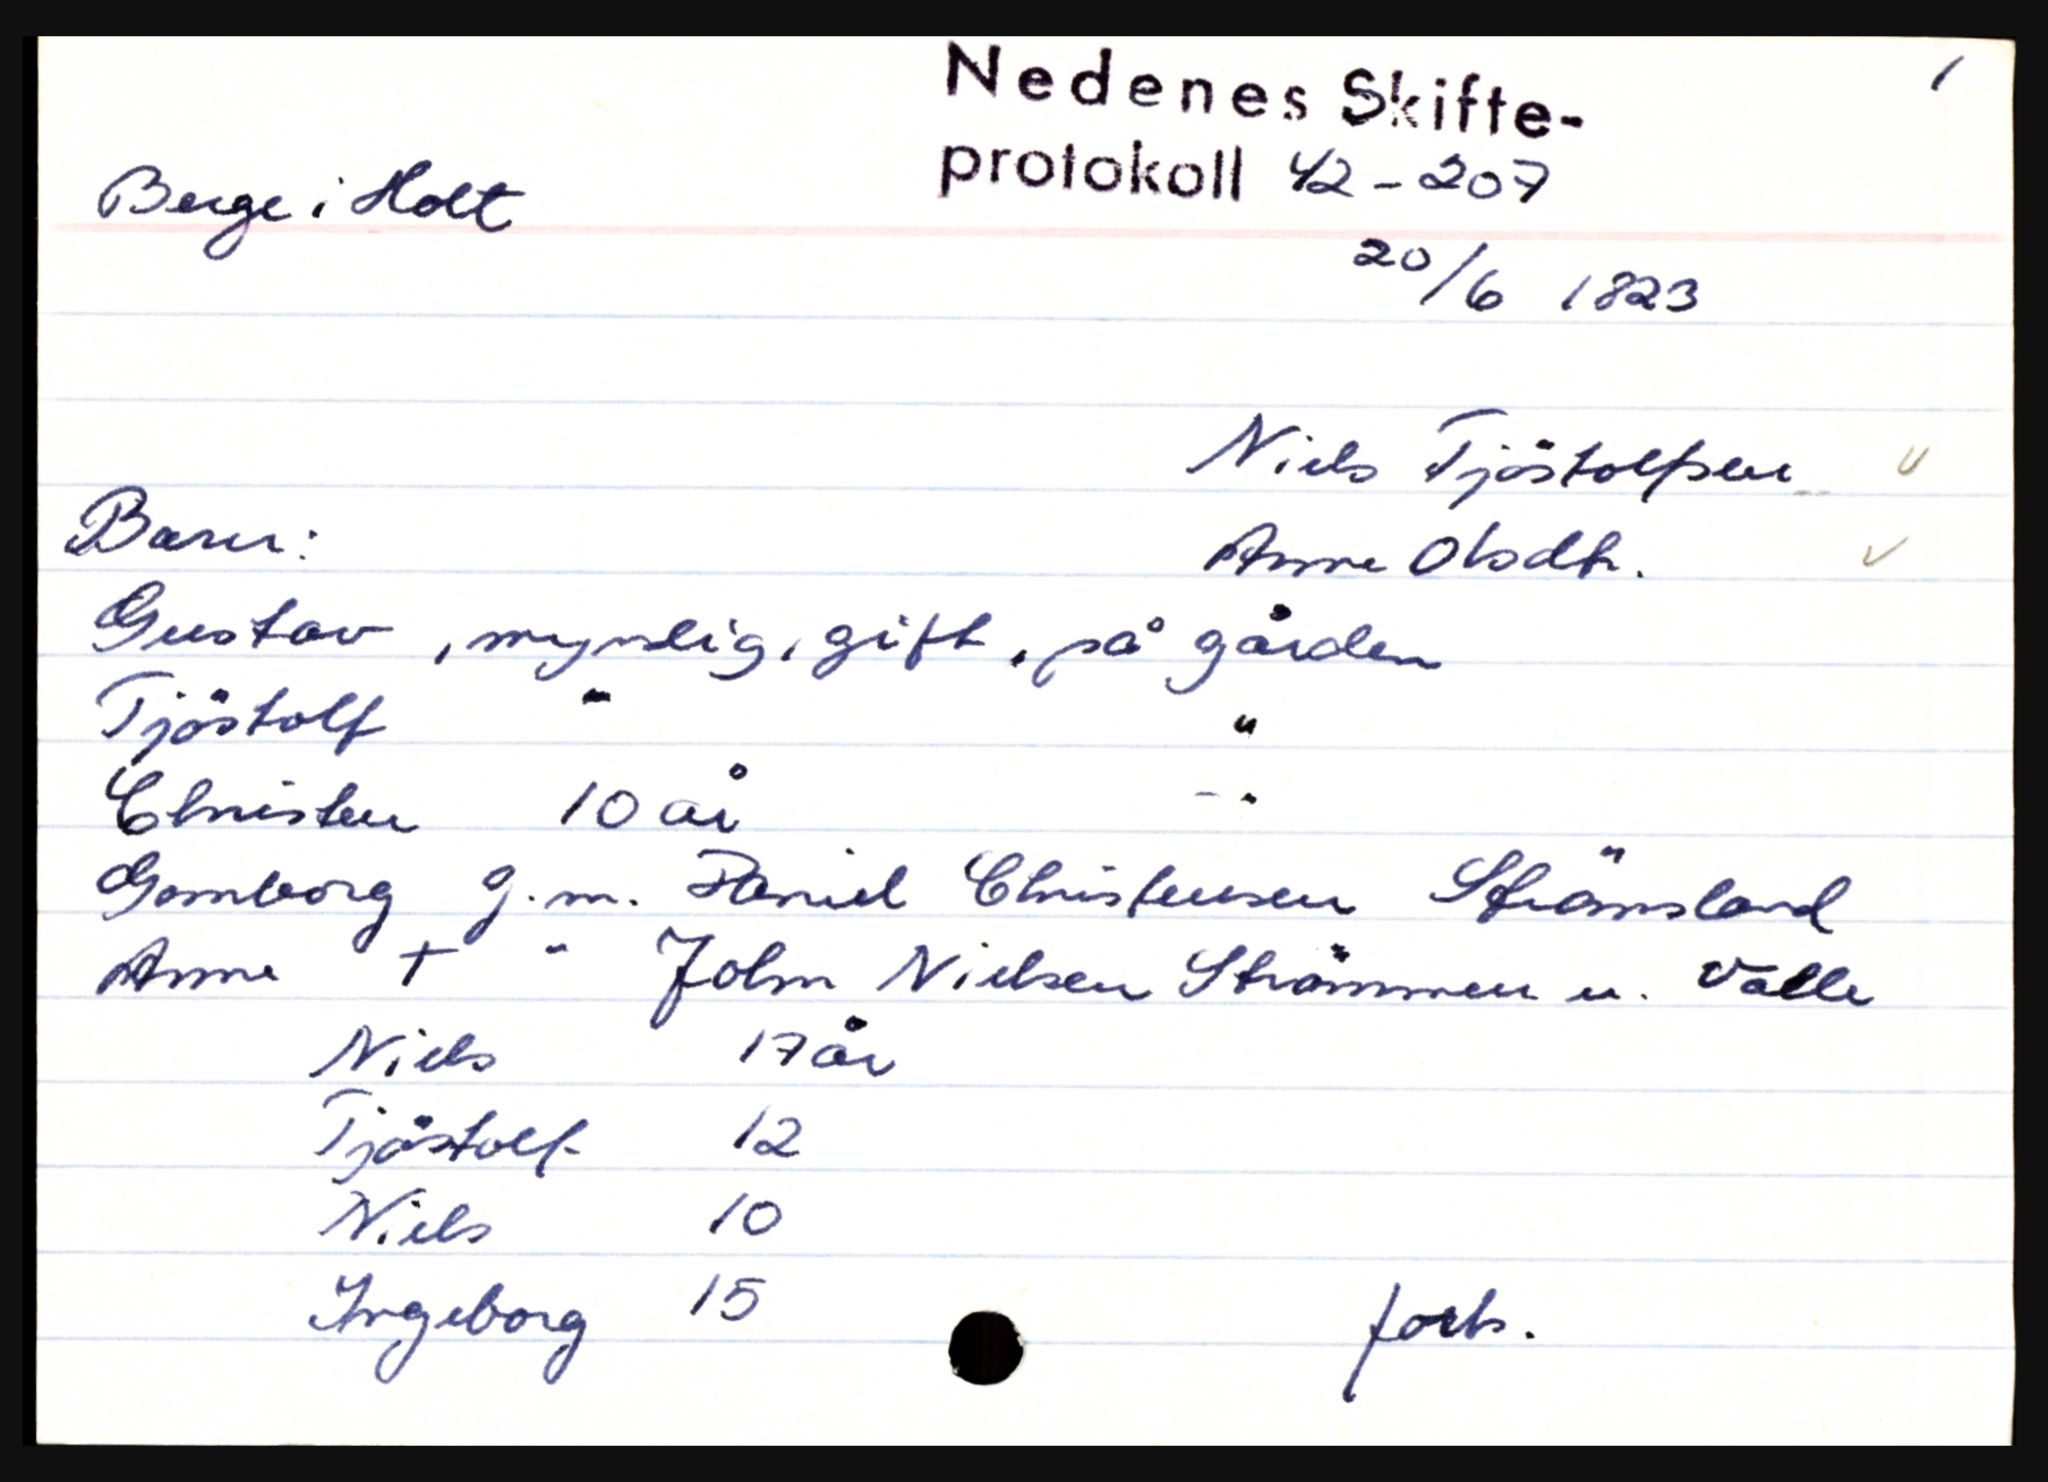 1
Nedenes Skifte-
protokoll 42-207
Berge i Holt
20/6 1823
Niels Tjöstolfsen
Anne Olsdtr.
Barn:
Gustav, myndig, gift, på gården
Tjöstolf " "
Christen 10 år -"-
Gomborg g.m. Daniel Christensen Strömsland
Anne + " John Nielsen Strömmen u. Valle
Niels 17 år
Tjöstolf 12
Niels 10
Ingeborg 15
forts.